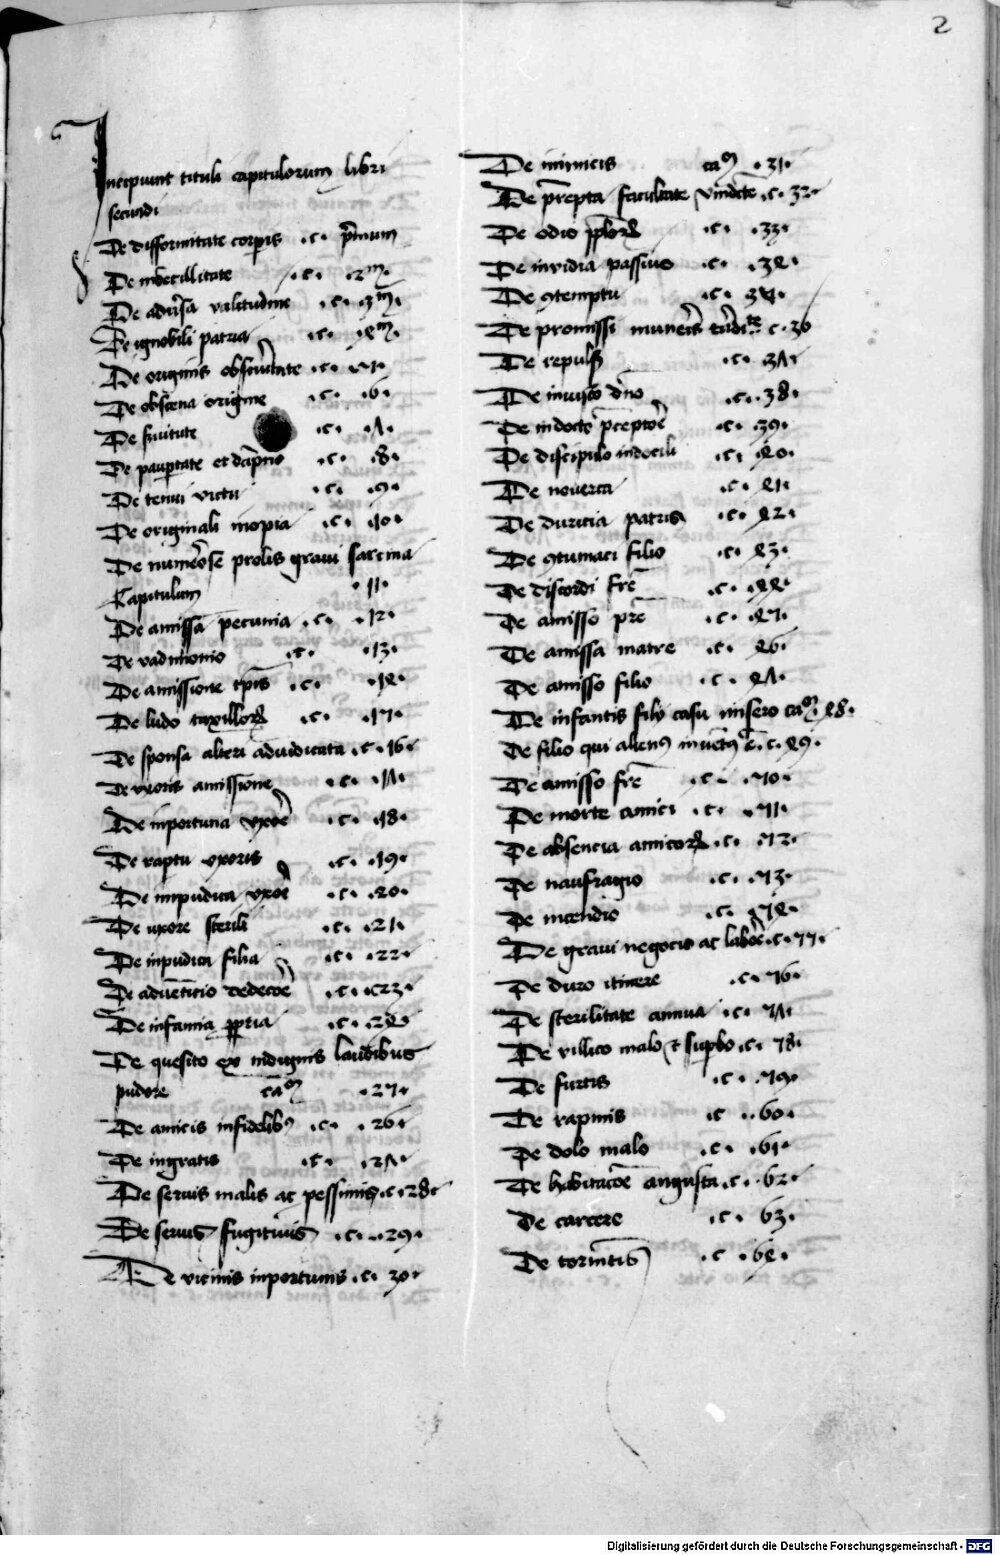 2
Incipiunt tituli capitulorum libri
secundi
De difformitate corporis .c. primum
De inbecillitate .c. 2m
De adu'sa valitudine .c. 3m
De ignobili patria .c. 4m
De originis obscuritate .c. 5.
De obscena origine .c. 6.
De s'uitute .c. 7.
De paup'tate et dampnis .c. 8.
De tenui victu .c. 9.
De originali inopia .c. 10.
De num'ose prolis graui sarcina
Capitulum .11.
De amissa pecunia .c. .12.
De vadimonio .c. .13.
De amissione tp̄is .c. .14.
De ludo taxilloꝝ .c. .15.
De sponsa alteri adiudicata .c. 16.
De vxoris amissione .c. .17.
De inportuna vxore .c. .18.
De raptu vxoris .c. .19.
De impudica vxore .c. .20.
De uxore sterili .c. .21.
De inpudica filia .c. .22.
De aduenticio dedecore .c. .23.
De infamia ꝓpria .c. .24.
De quesito ex indignis laudibus
pudore cam .25.
De amicis infidelib9 .c. .26.
De ingratis .c. .27.
De seruis malis ac pessimis .c. 28.
De seruis fugitiuis .c. .29.
De vicinis inportunis .c. 30.
De inimicis cam .31.
De p̄repta facultate vindicte .c. 32.
De odio pploꝝ .c. .33.
De inuidia passiue .c. .34.
De 9temptu .c. 35.
De promissi muneris tarditate c. 36
De repulsis .c. 37.
De iniusto dn̄o .c. .38.
De indocto p̄ceptore .c. .39.
De discipulo indocili .c. .40.
De nouerca .c. .41.
De duricia patris .c. .42.
De 9tumaci filio .c. .43.
De discordi fr̄e .c. .44.
De amisso pr̄e .c. .45.
De amissa matre .c. .46.
De amisso filio .c. .47.
De infantis filij casu misero cam .48.
De filio qui alien9 inuent9 ē .c. 49.
De amisso fr̄e .c. .50.
De morte amici .c. .51.
De absencia amicoꝝ .c. .52.
De naufragio .c. .53.
De incendio .c. .54.
De graui negocio ac labore .c. 55.
De duro itinere .c. 56.
De sterilitate annua .c. 57.
De villico malo et supbo .c. 58.
De furtis .c. .59.
De rapinis .c .60.
De dolo malo .c. .61.
De habitacōe angusta .c. .62.
De carcere .c. 63.
De tormentis .c .64.
Digitalisierung gefördert durch die Deutsche Forschungsgemeinschaft - DFG